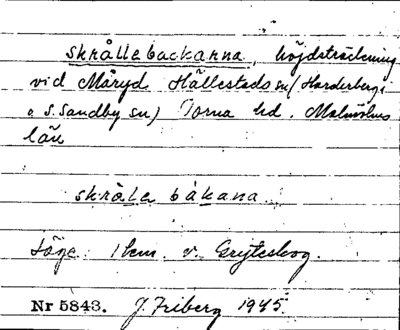 skrållebackarna, höjdsträckning
vid Måryd Hällestads sn (Harderberga
o. S. Sandby sn) Torna hd. Malmöhus
län
skråle bákana.
Läge: 1 km. v. Gryteskog.
Nr 5843. J. Friberg 1945.